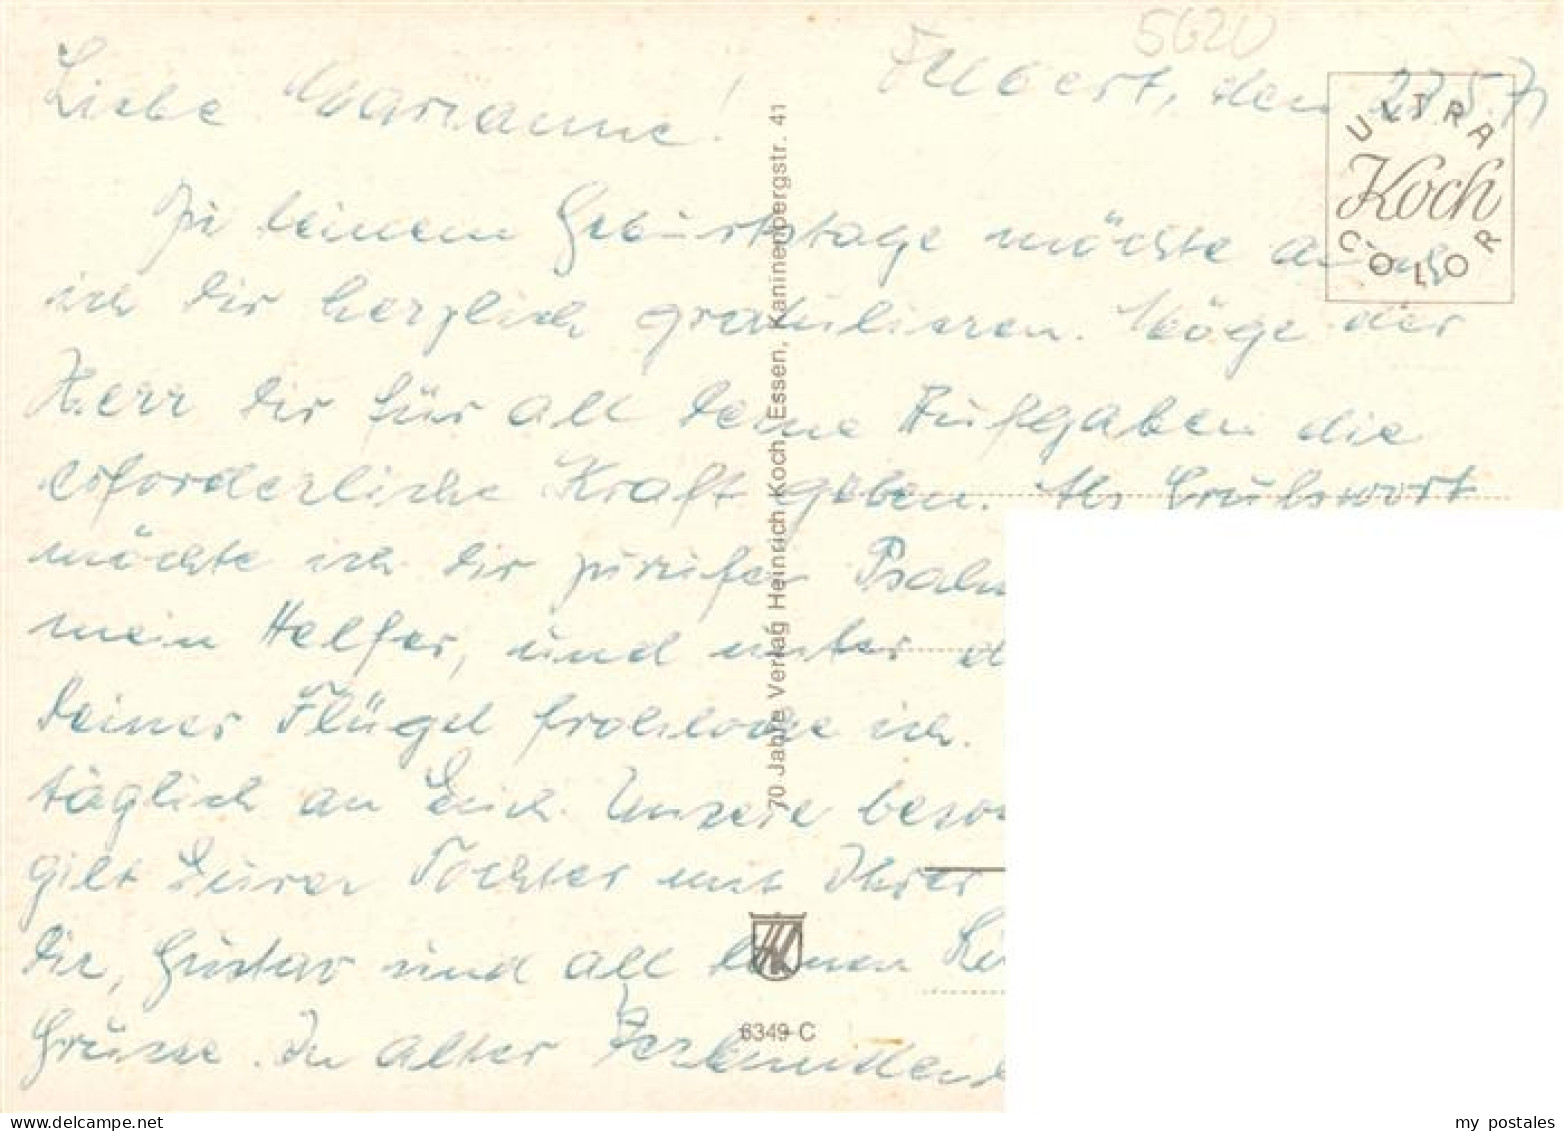 5620
Velbert, den 27.5.71
Liebe Marianne!
Zu deinem Geburtstage möchte auch
ich dir herzlich gratulieren. Möge der
Herr dir für all deine Aufgaben die
erforderliche Kraft geben. Als Grußwort
möchte ich dir zurufen Psalm
mein Helfer, und unter d
deiner Flügel frohlocke ich.
täglich an Euch. Unsere beson
gilt Eurer Tochter mit Ihrer
dir, Gustav und all deinen Li
Grüsse. In alter Verbundenh
ULTRA
Koch
COLOR
70 Jahre Verlag Heinrich Koch, Essen, Kaninenbergstr. 41
HK
6349 C
my postales